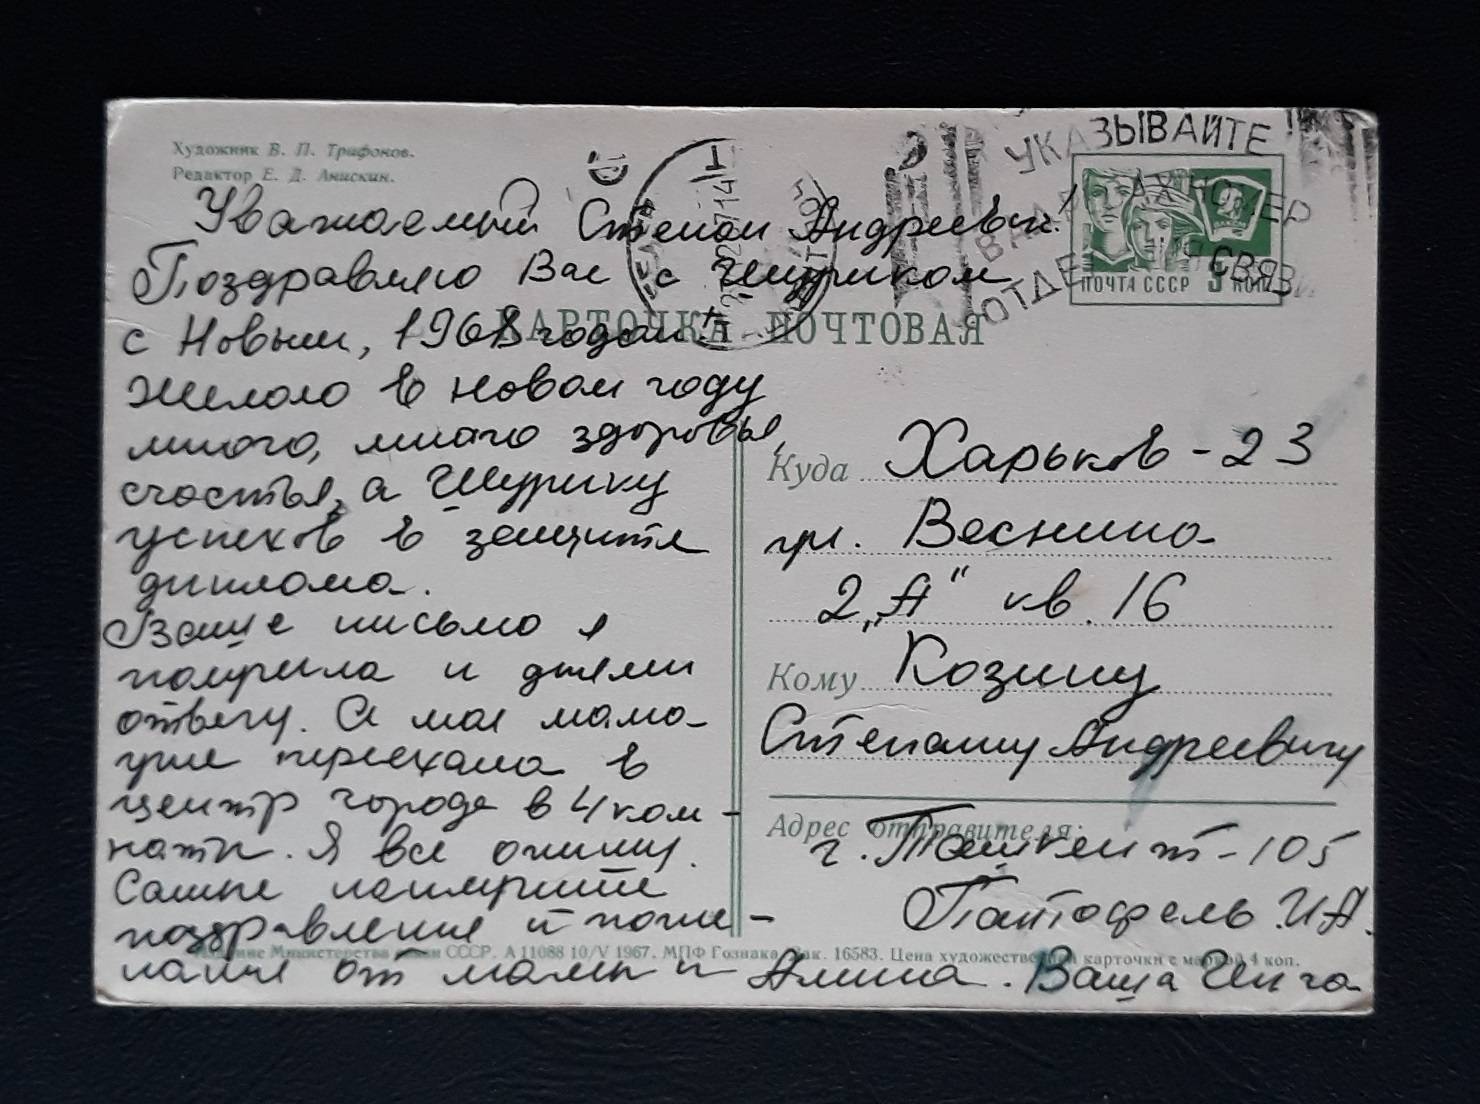 Художник В. П. Трифонов.
Редактор Е. Д. Анискин.
УКАЗЫВАЙТЕ
В АДРЕСАХ НОМЕР
ОТДЕЛЕНИЯ СВЯЗИ
ПОЧТА СССР 3 КОП
КАРТОЧКА ПОЧТОВАЯ
Уважаемый Степан Андреевич!
Поздравляю Вас с Шуриком
с Новым, 1968 годом!
Желаю в новом году
много, много здоровья,
счастья, а Шурику
успехов в защите
диплома.
Ваше письмо я
получила и днями
отвечу. А моя мама
уже переехала в
центр города в 4 ком-
наты. Я все опишу.
Самые наилучшие
поздравления и поже-
лания от мамы и Алика. Ваша Инга
Куда Харьков-23
ул. Веснина
2 „А" кв. 16
Кому Козину
Степану Андреевичу
Адрес отправителя:
г. Ташкент-105
Пантофель И.А.
Издание Министерства связи СССР. А 11088 10/V 1967. МПФ Гознака Зак. 16583. Цена художественной карточки с маркой 4 коп.